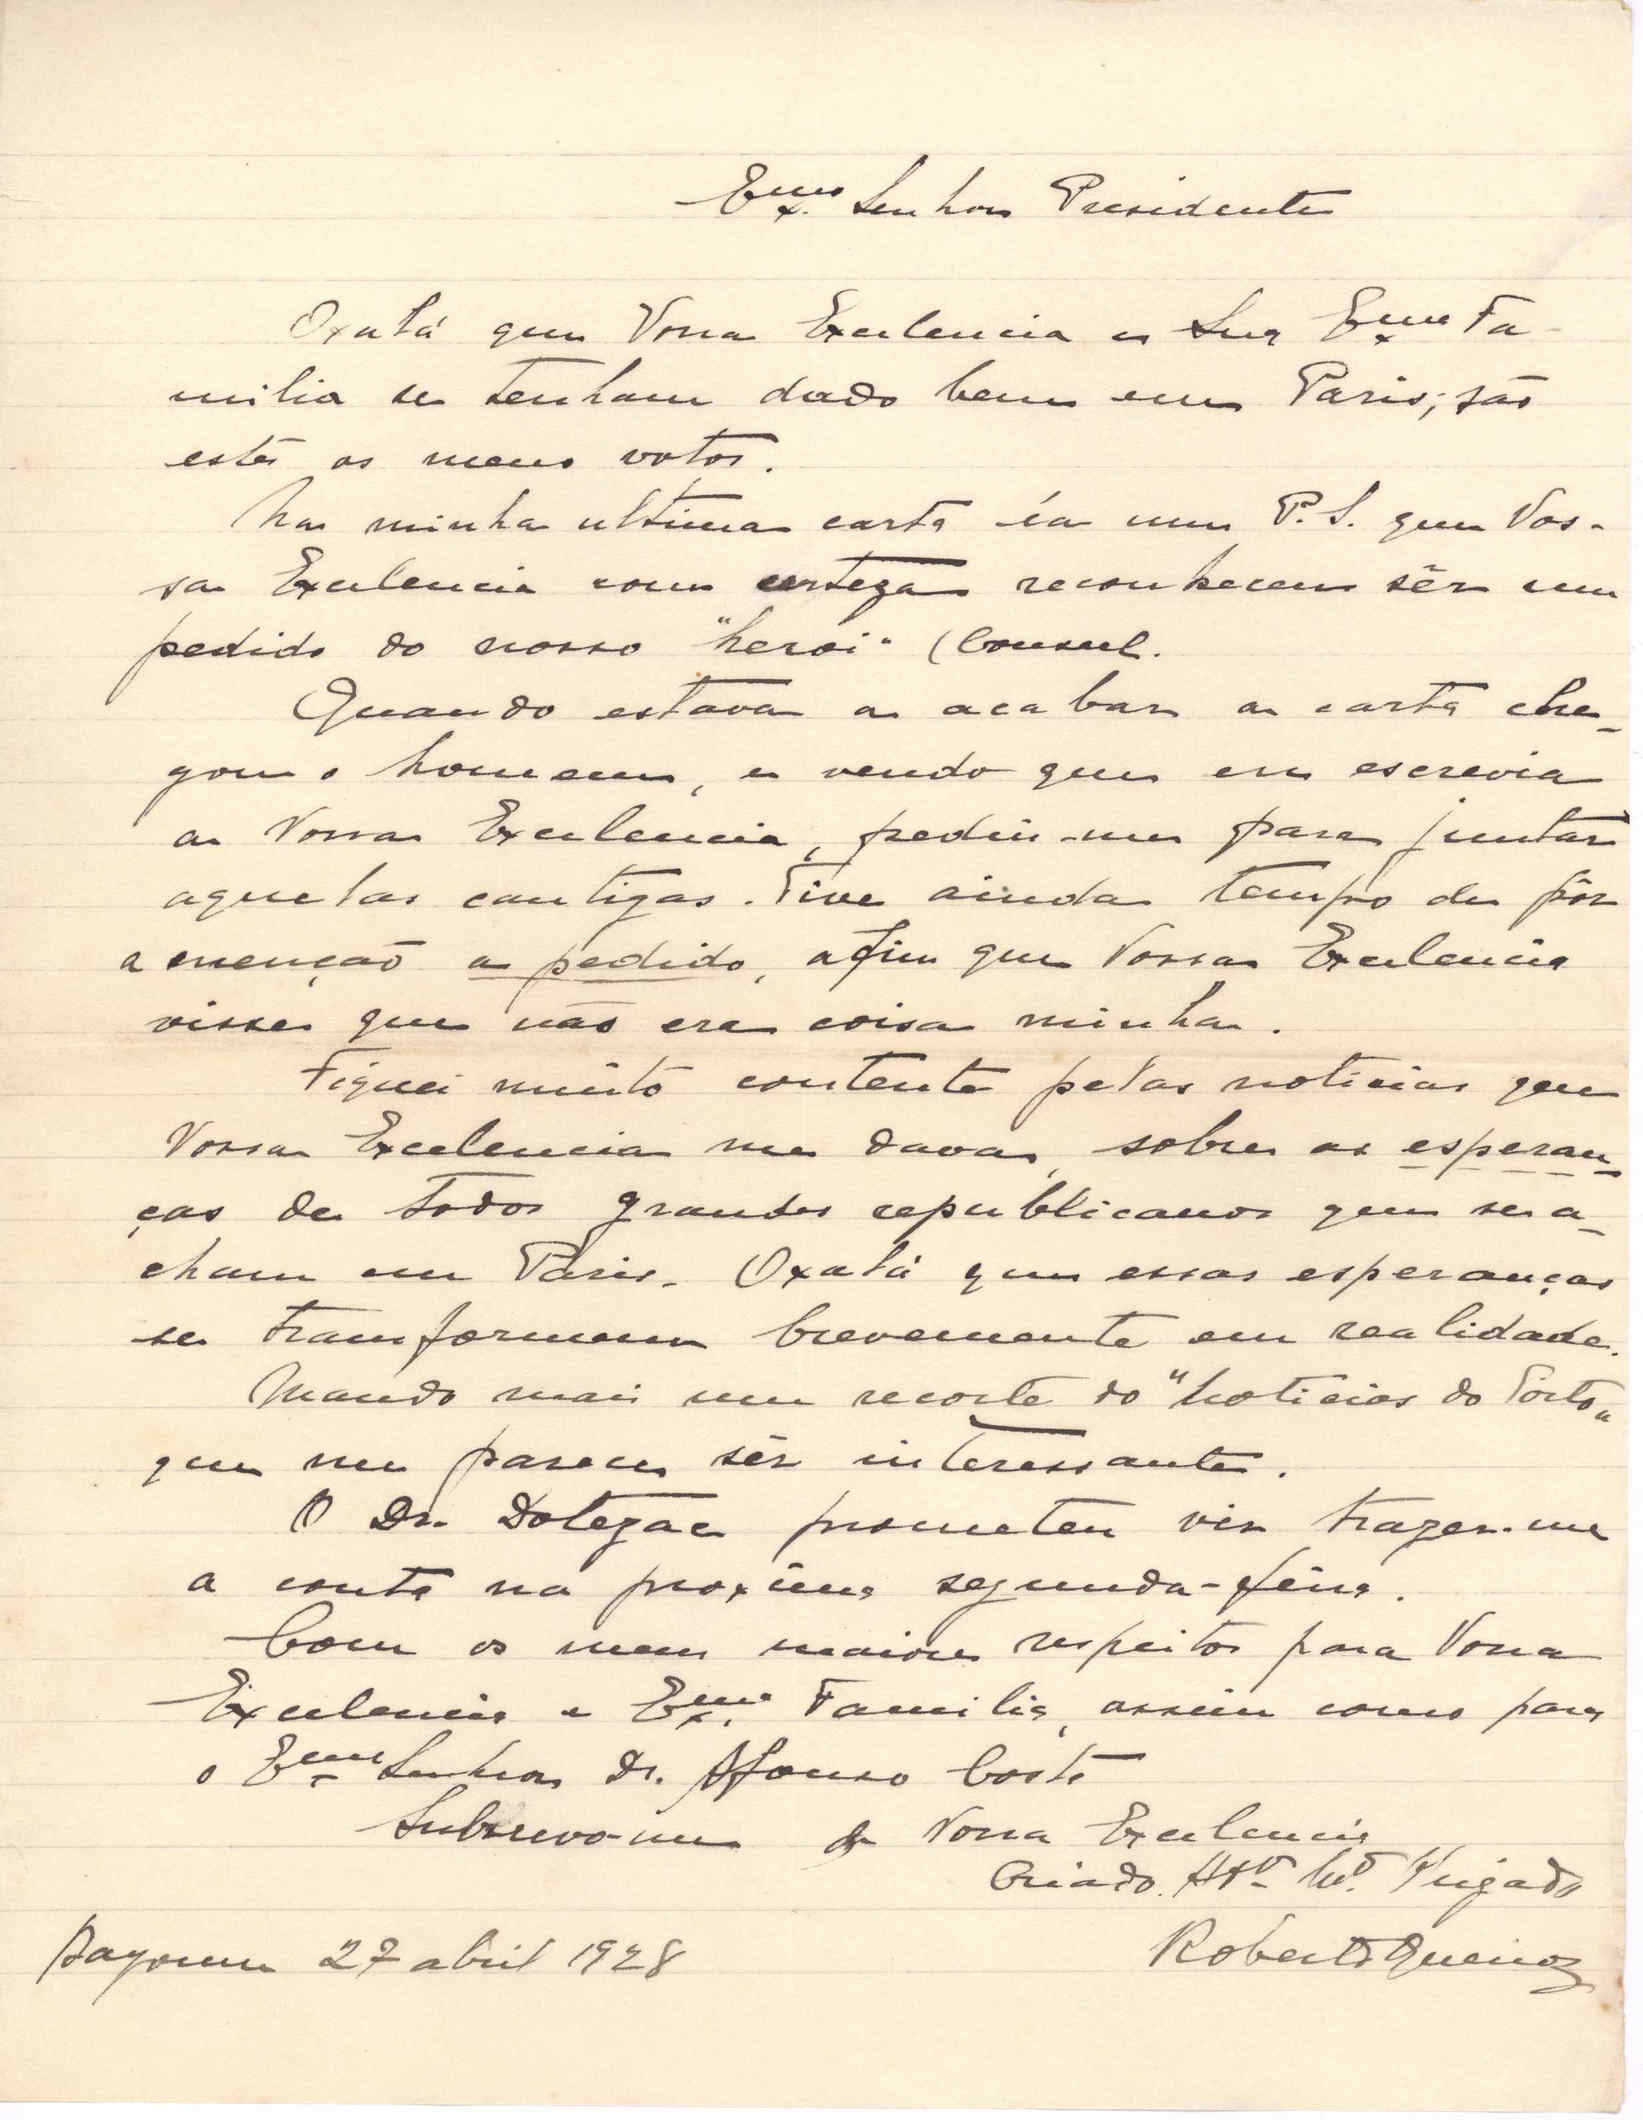 Exmo. Senhor Presidente
Oxalá que Vossa Excelencia e Sua Exma Fa-
milia se tenham dado bem em Paris; são
estes os meus votos.
Na minha ultima carta ía um P.S. que Vos-
sa Excelencia com certeza reconheceu sêr um
pedido do nosso "heroi" (Consul.
Quando estava a acabar a carta che-
gou o homem, e vendo que eu escrevia
a Vossa Excelencia, pediu-me para juntar
aquelas cantigas. Tive ainda tempo de pôr
a menção a pedido, afim que Vossa Excelencia
visse que não era coisa minha.
Fiquei muito contente pelas noticias que
Vossa Excelencia me dava, sobre as esperan-
ças de todos grandes republicanos que se a-
cham em Paris. Oxalá que essas esperanças
se transformem brevemente em realidade.
Mando mais um recorte do "Noticias do Porto"
que me parece sêr interessante.
O Dr. Dolezac prometeu vir trazer-me
a conta na proxima segunda-feira.
Com os meus maiores respeitos para Vossa
Excelencia e Exma. Familia, assim como para
o Exmo Senhor Dr. Afonso Costa
Subscrevo-me de Vossa Excelencia
Criado. Atº Mº. Obrigado
Bayonne 27 abril 1928
Roberto Queiroz